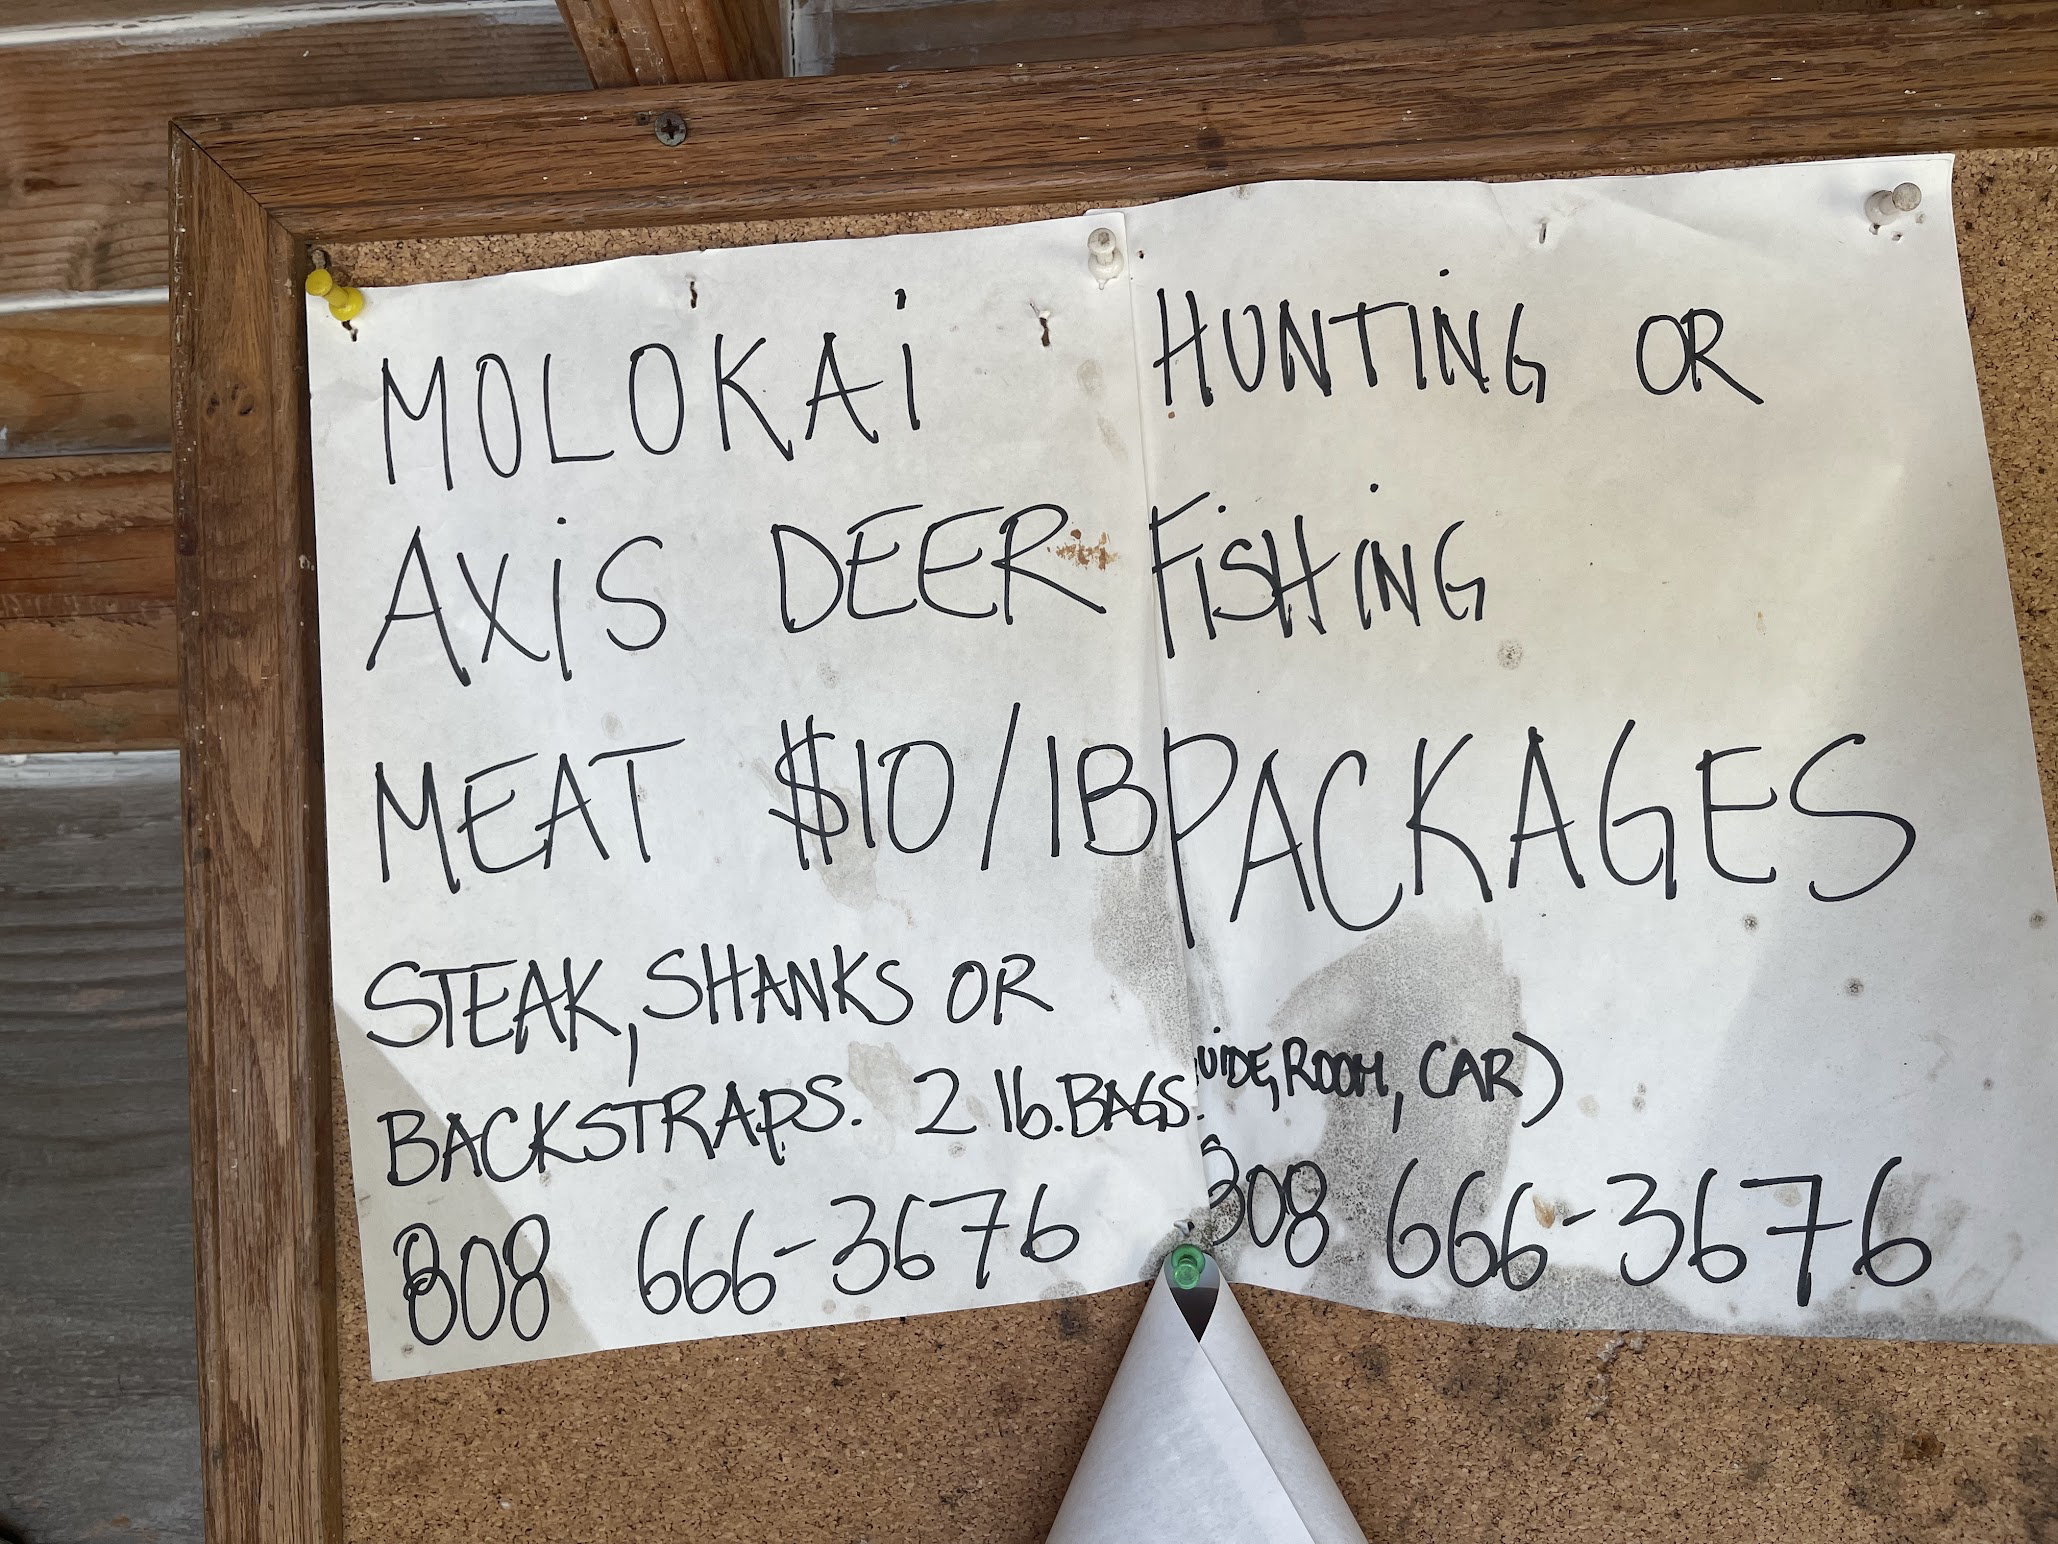 MOLOKAi
AXiS DEER
MEAT $10/lB
STEAK, SHANKS OR
BACKSTRAPS. 2 lb. BAGS.
808 666-3676
HUNTiNG OR
FiSHiNG
PACKAGES
UIDE, ROOM, CAR)
808 666-3676